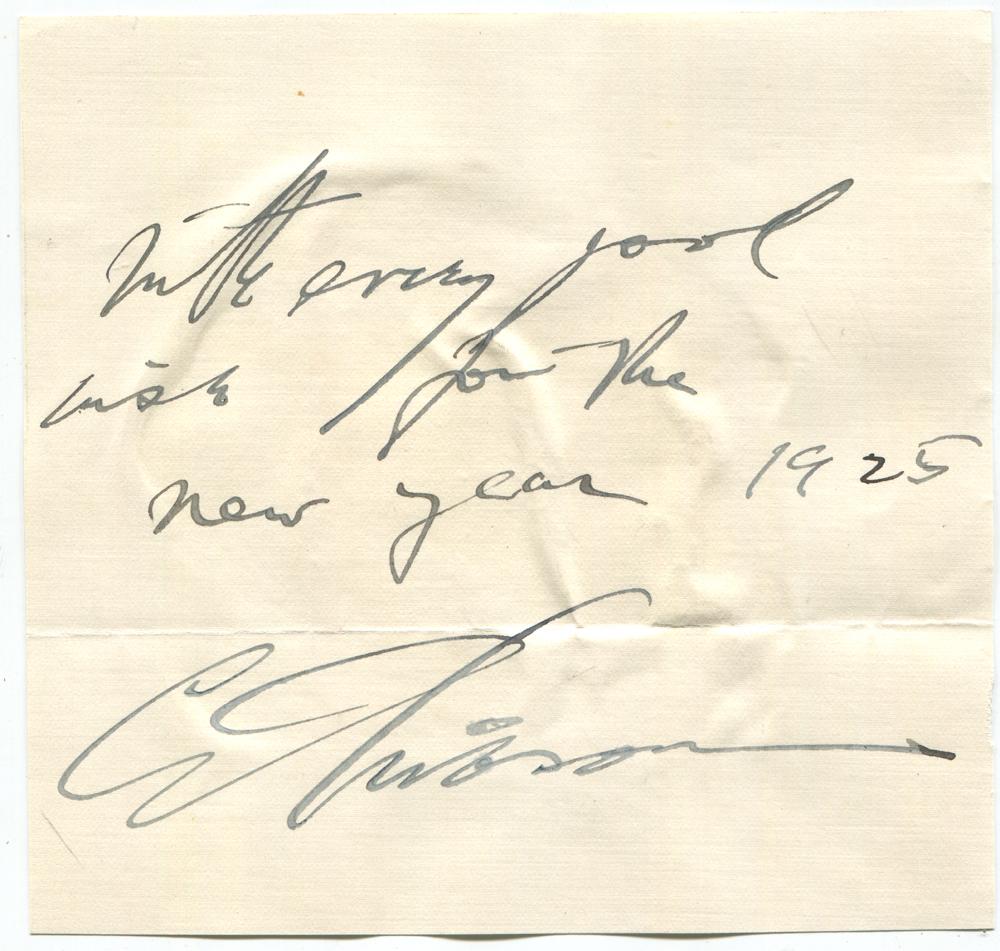 With every good
wish for the
new year 1925